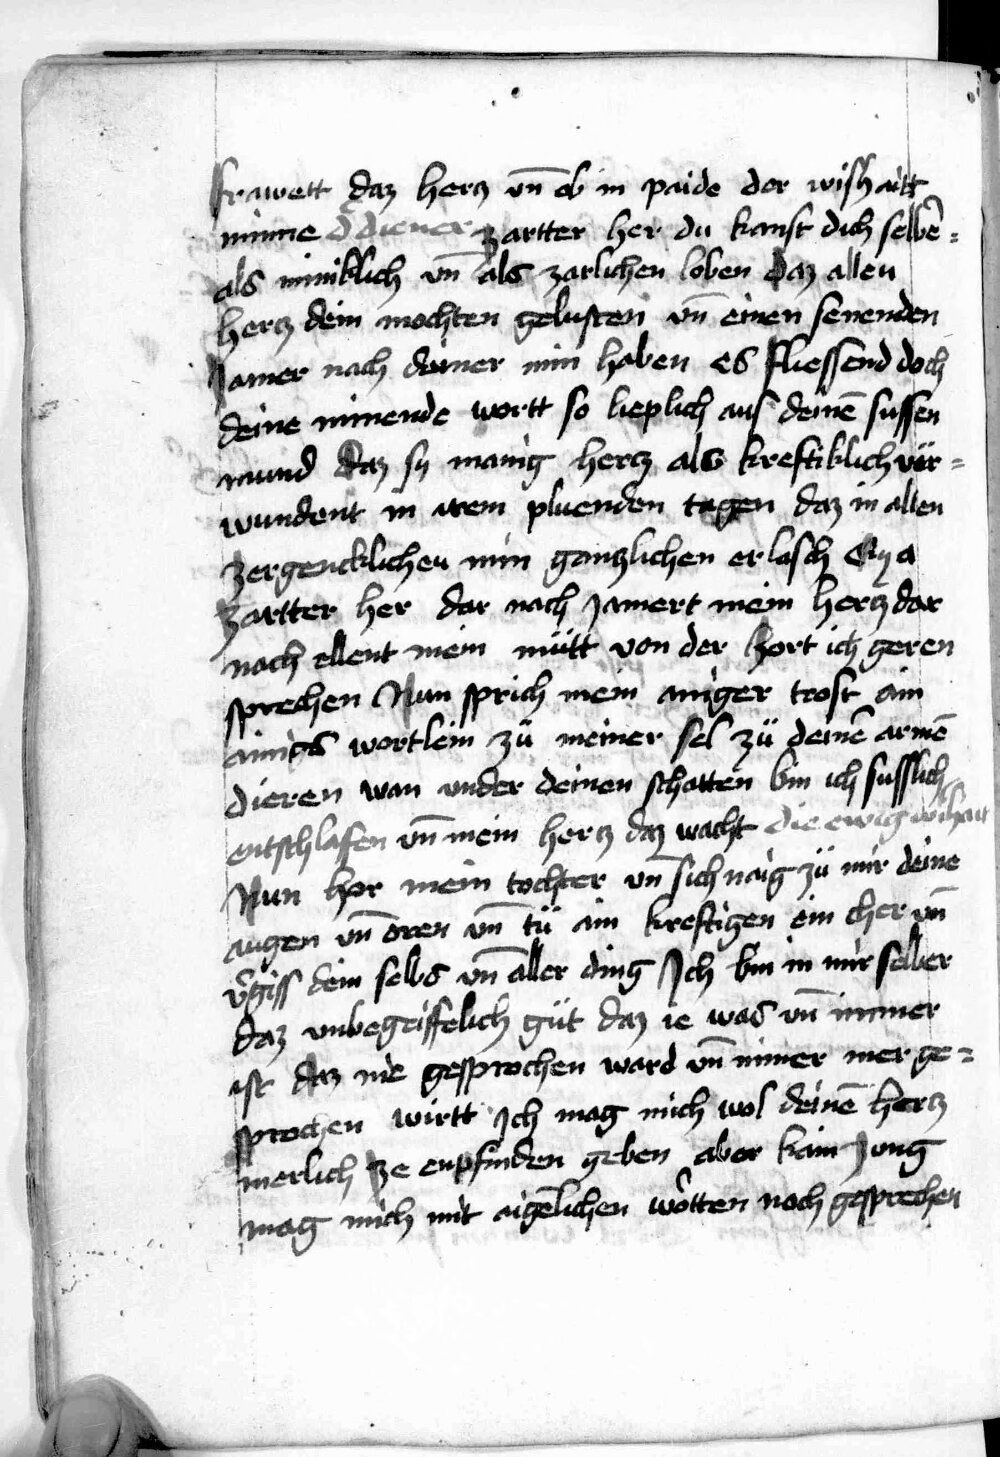 frawett daz hercz vn̄ ob in paide der wishaitt
minne d̄ diener zartter her du kanst dich selbē =
als miniklich vn̄ als zarlichen loben daz allen
hercz dein mochten gelusten vn̄ einen senenden
Jamer nach deiner min haben es fliessend doch
deine minende wortt so lieplich aus deinē sussen
mund daz sy manig hercz als kreftiklich ver =
wundent in irem pluenden tagen daz in allen
zergencklichen min ganczlichen erlasch Eya
zartter her dar nach Jamert mein hercz dar
nach ellent mein mütt von der hort ich geren
sprechen Nun sprich mein ainiger trost ain
ainigs wortlein zü meiner sel zü deinē armē
dieren wan under deinen schatten bin ich susslich
entschlafen vn̄ mein hercz daz wacht die ewig wishait
Nun hor mein tochter vn̄ sich naig zü mir deine
augen vn̄ oren vn̄ tü ain kreftigen ein cher vn̄
v̄giss dein selbs vn̄ aller ding Ich bin in mir selber
daz vnbegriffelich güt daz ie was vn̄ immer
ist daz nie gesprochen ward vn̄ nimer mer ge =
sprochen wirtt Ich mag mich wol deinē hercz
inerlich ze enpfinden geben aber kain zung
mag mich mit aigēlichen wōtten noch gesprechen